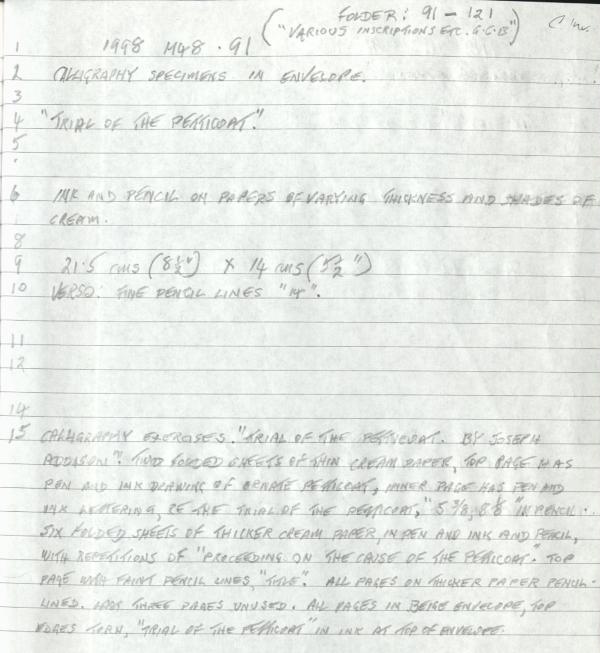 FOLDER: 91 - 121
("VARIOUS INSCRIPTIONS ETC. G.C.B")
1 1998 M48 . 91
2 CALLIGRAPHY SPECIMENS IN ENVELOPE.
3
4 "TRIAL OF THE PETTICOAT."
5
6 INK AND PENCIL ON PAPERS OF VARYING THICKNESS AND SHADES OF
CREAM.
8
9 21.5 cms (8½") X 14 cms (5½")
10 VERSO: FINE PENCIL LINES "14".
11
12
14
15 CALLIGRAPHY EXERCISES. "TRIAL OF THE PETTICOAT. BY JOSEPH
ADDISON". TWO FOLDED SHEETS OF THIN CREAM PAPER, TOP PAGE HAS
PEN AND INK DRAWING OF ORNATE PETTICOAT, INNER PAGE HAS PEN AND
INK LETTERING, RE THE TRIAL OF THE PETTICOAT, IN PENCIL.
SIX FOLDED SHEETS OF THICKER CREAM PAPER IN PEN AND INK AND PENCIL,
WITH REPETITIONS OF "PROCEEDING ON THE CAUSE OF THE PETTICOAT." TOP
PAGE WITH FAINT PENCIL LINES, "TITLE". ALL PAGES ON THICKER PAPER PENCIL-
LINED. LAST THREE PAGES UNUSED. ALL PAGES IN BEIGE ENVELOPE, TOP
EDGES TORN, "TRIAL OF THE PETTICOAT" IN INK AT TOP OF ENVELOPE.